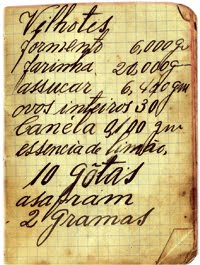 Vilhotes
formento 6,000 gr
farinha 20,000 g
assucar 6,400 gm
ovos inteiros 30
Canéla 0,100 gm
essencia de limão,
10 gôtas
asafram
2 gramas